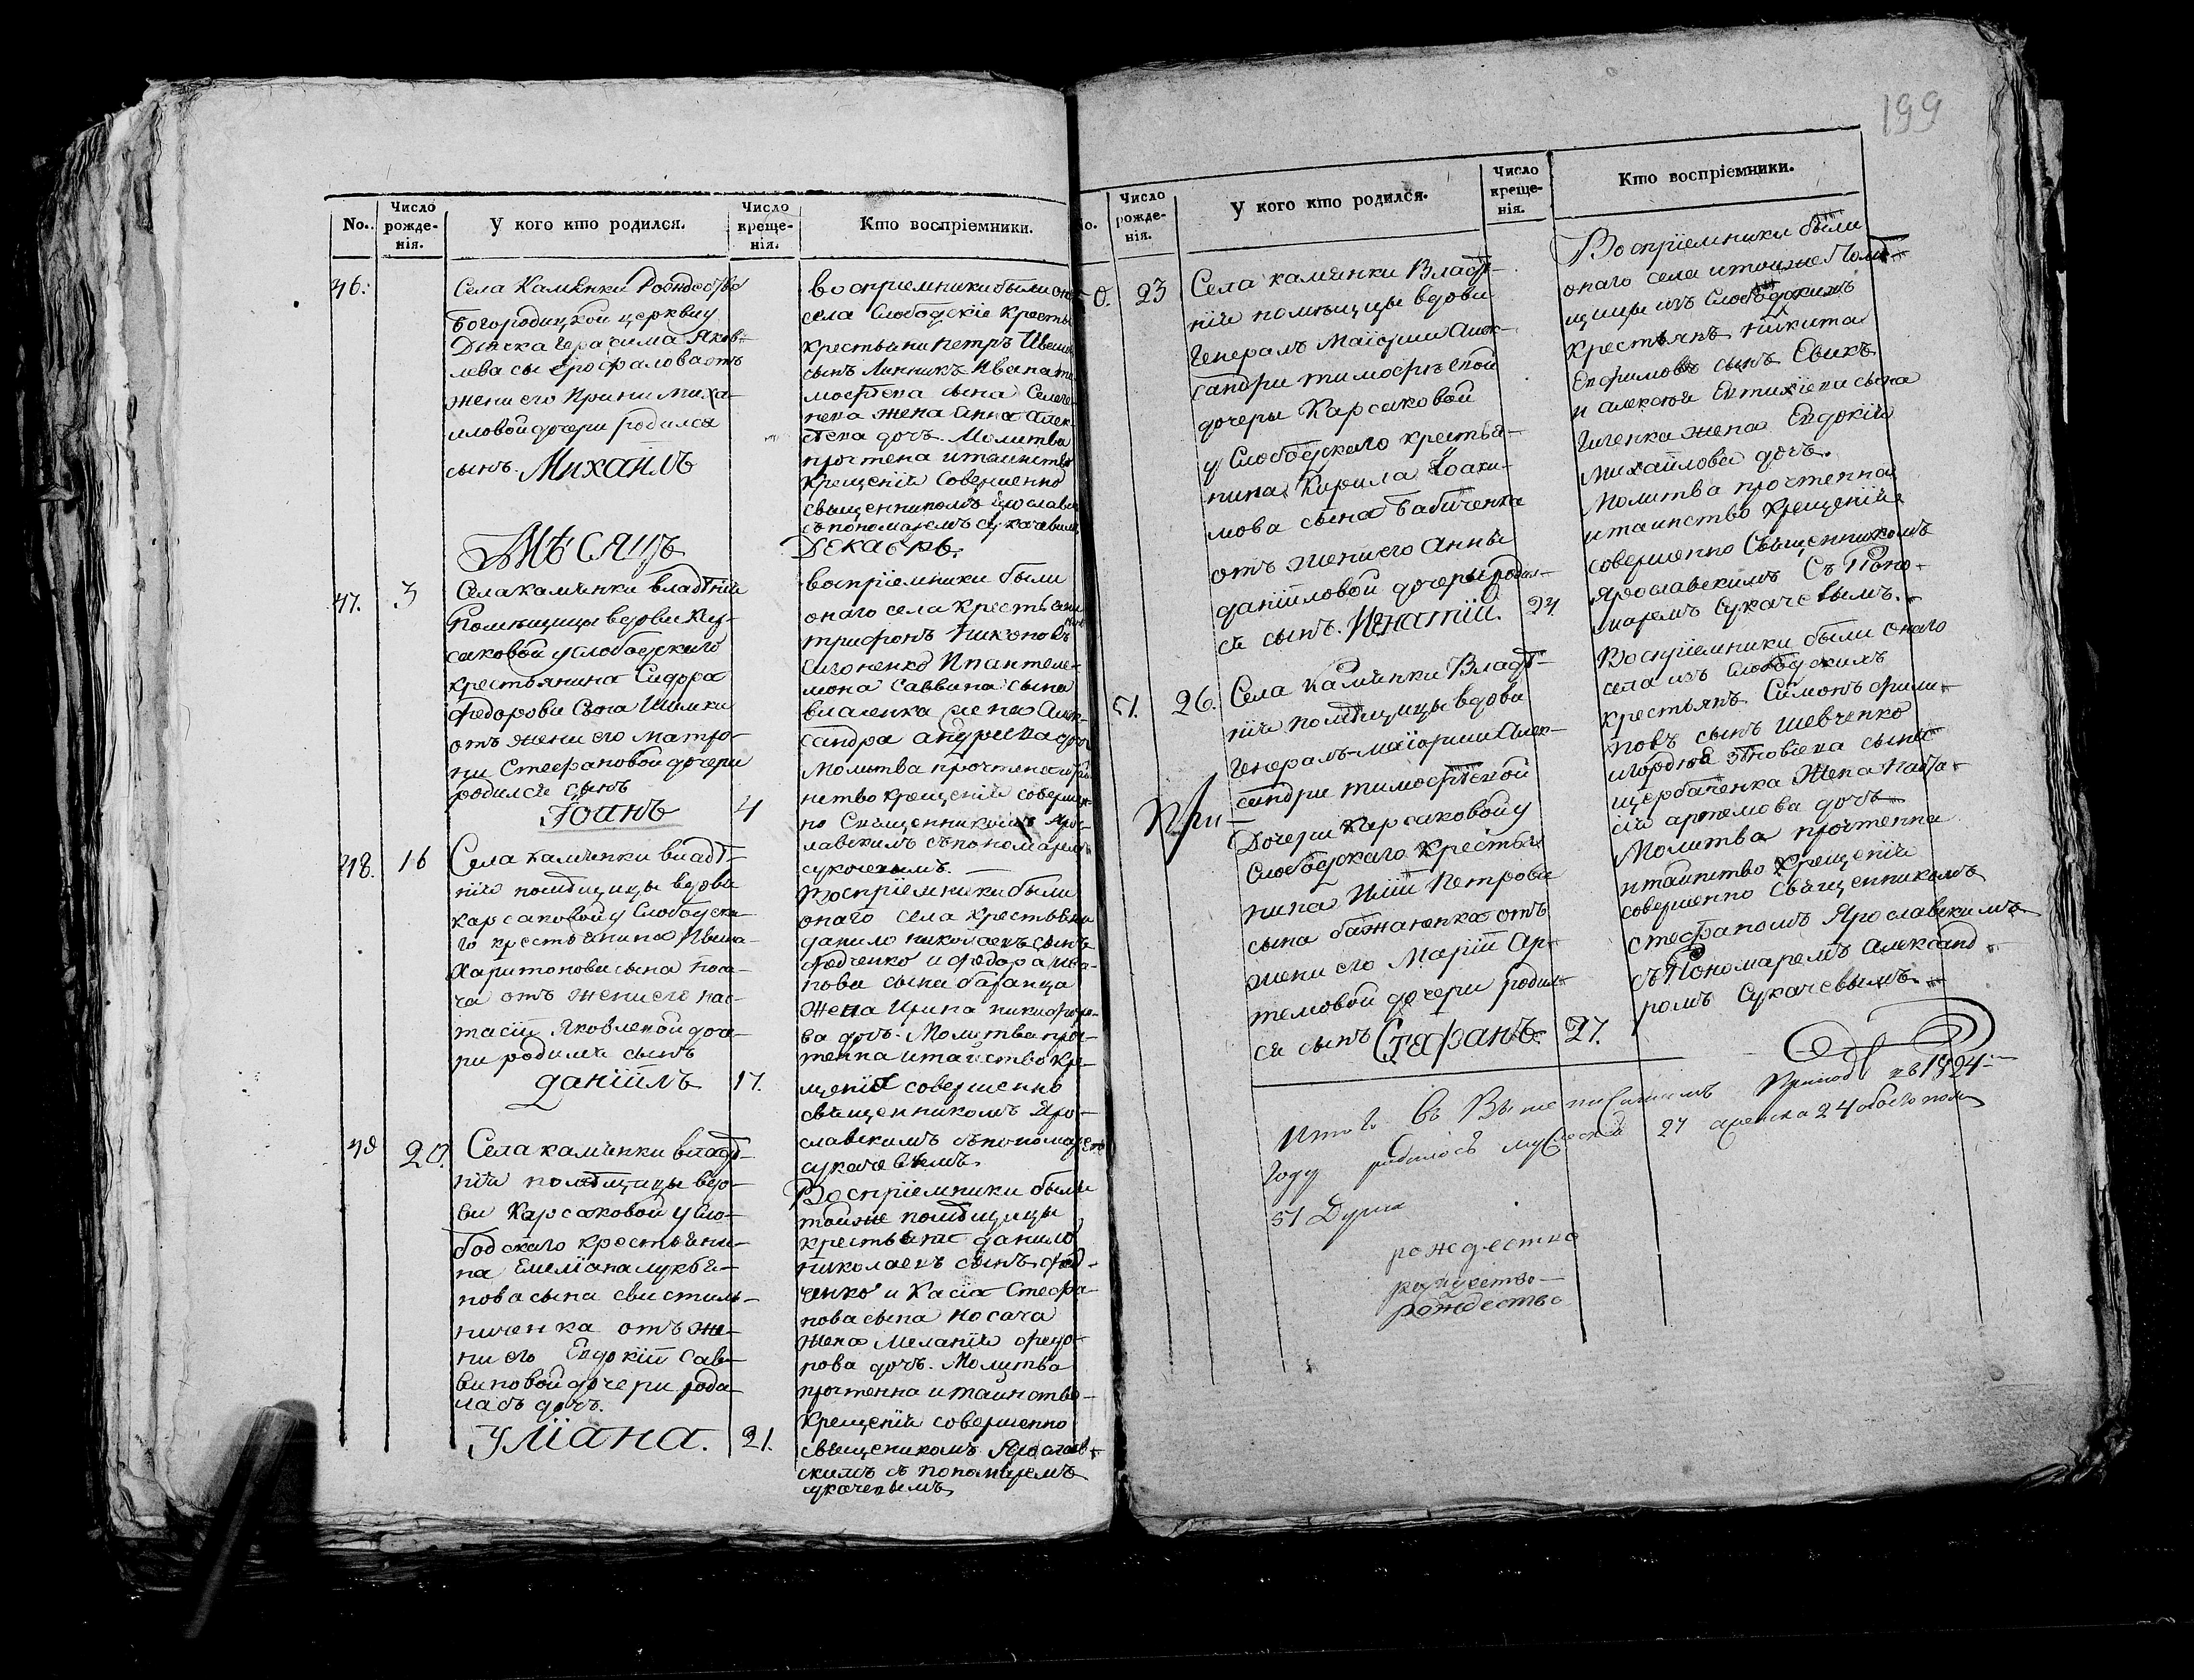 199
No.
Число рожде-нія.
У кого кто родился.
Число креще-нія.
Кто воспріемники.
46.
Села Камѣнки Рождества
Богородицкой церкви у
Дячка Герасима Яков-
лева сы Ерофалова отъ
жени его Ирини Миха-
иловой дочери родился
сынъ. Михаилъ
воспріемники были
села Слободскіе
крестьяни Петръ
сынъ Линникъ Ивана
сына
жена Анна
дочъ. Молитва
прочтена и таинство
Крещенія Совершенно
священникомъ Ярославск
съ пономаремъ Сукачевимъ
Мѣсяцъ Декабрь.
47.
3
Села камѣнки владѣнія
Помѣщицы вдови Кар-
саковой у слободскаго
крестьянина Сидора
Федорови сына Шимки
отъ жени его Матро-
ни Стефановой дочери
родился сынъ
Іоанъ
4
воспріемники были
онаго села крестьяни
трифонъ Никоновъ
Сизоненко И пантеле-
мона Саввина сына
жена Алек-
сандра андріева доч
Молитва прочтена и таи
нство крещенія соверше-
но Священникомъ Яро-
лавскимъ съ пономарем
сукачевымъ.
48.
16
Села камѣнки владѣ-
нія помѣщицы вдови
карсаковой у Слободска-
го крестьянина Ивана
Харитонови сына Коса-
ча отъ жени его нас-
тасіи Яковлевой доче-
ри родился сынъ
даніилъ
17.
Воспріемники были
онаго села крестьяни
данило николаевъ сынъ
Федченко и федора ива-
нова сына баганца
жена Ирина никифоро-
ва дочъ. Молитва проч-
тенна и таиство кре-
щенія совершенно
священникомъ Яро-
славскимъ съ пономарем
сукачевымъ.
49
20.
Села камѣнки владѣ-
нія помѣщицы вдо-
ви Карсаковой у Сло-
бодскаго крестьяни-
на Емеліана лукья-
нова сына свистиль-
ниченка отъ же-
ни его Евдокіи Сав-
виновой дочери роди-
ласъ дочъ.
Уліана.
21.
Воспріемники были
тойже помѣщицы
крестьяне данило
николаевъ сынъ фед-
ченко и Касіа Стефа-
нова сына носача
жена Меланія федо-
рова дочъ. Молитва
прочтенна и таинство
Крещенія совершенно
священикомъ Ярослав-
скимъ съ пономаремъ
сукачевымъ
No.
Число рожде-нія.
У кого кто родился.
Число креще-нія.
Кто воспріемники.
50.
23
Села камѣнки Владѣ-
нія помѣщицы вдови
Генералъ Маіорши Алек-
сандри тимофѣевой
дочеры Карсаковой
у Слободскаго крестья-
нина Кирила Іоаки-
мова сына Бабиченка
отъ жени его Анны
даніиловой дочеры родил-
ся сынъ. Игнатій.
24
Воспріемники были
онаго села и тоиже Помѣ-
щицы изъ Слободскихъ
крестьянъ Никита
Ефимовъ сынъ
и алексѣя Евтихіева сына
жена Евдокія
михайлова дочъ.
Молитва прочтенна
и таинство Крещенія
совершенно Священникомъ
Ярославскимъ Съ Поно-
маремъ Сукачевымъ.
51.
26.
Села Камѣнки Владѣ-
нія помѣщицы вдови
Генералъ-маіорши Алек-
сандри тимофѣевой
Дочери Карсаковой у
Слободскаго Крестья-
нина Иліи Петрови
сына бажаненка отъ
жени его Маріи Ар-
темовой дочери родил-
ся сынъ Стефанъ.
27.
При
Воспріемники были онаго
села изъ слободскихъ
крестьянъ Симонъ фили-
повъ сынъ Шевченко
и гордѣя Зѣновіева сына
щербаченка Жена Наста-
сія артемова дочъ
Молитва прочтенна
и таинство Крещенія
совершенно Священникомъ
стефаномъ Ярославскимъ
съ Пономаремъ Александ-
ромъ Сукачевымъ.
Итого въ Вышеписанномъ приходѣ въ 1824
Году родилось мужеска 27 а женска 24 обоего пола
51 Душа
рождество
рождество
рождество